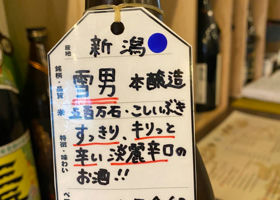 産地 新潟
銘柄・品質 雪男 本醸造
米 五百万石・こしいぶき
特徴・味わい すっきり、キリっと
辛い 淡麗辛口の
お酒!!